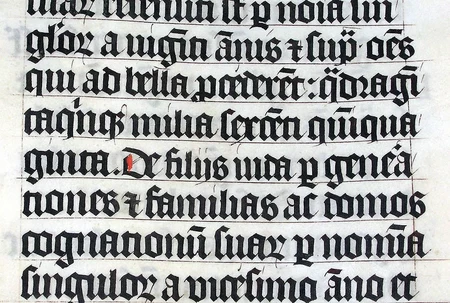 suar recensiti st p noīa sin
gloꝝ a uiginti ānis ⁊ sup· oēs
qui ad bella ꝓcederēt: qͣdragī
taqͥnqꝫ milia sexcēti quīqua
ginta. De filijs iuda p geneʳa
tiones ⁊ familias ac domos
cognationū suaꝝ p nomīa
singuloꝝ a vicesimo āno et